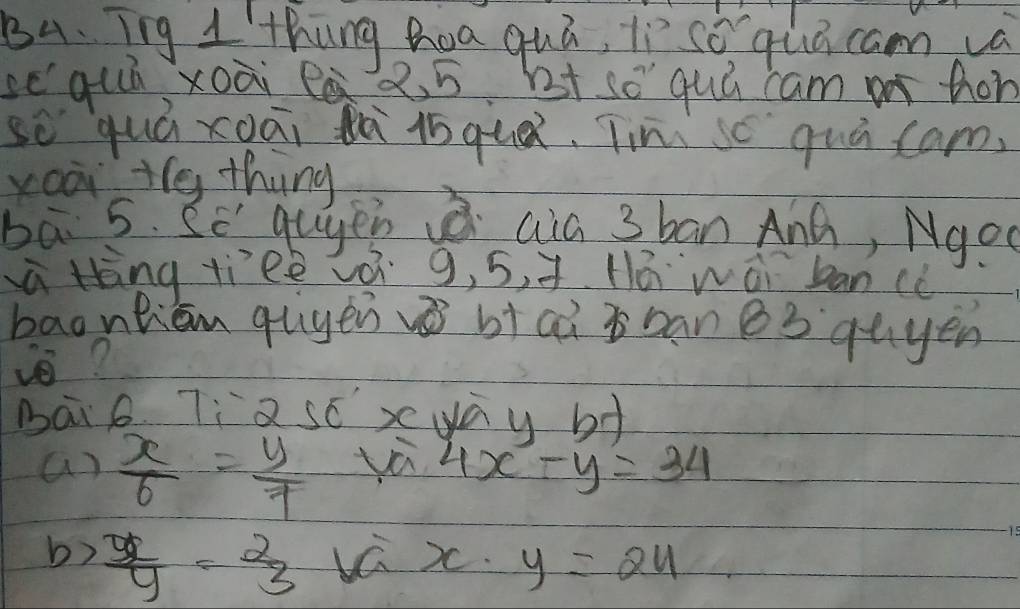 B4. Trg 1 thùng hoa quả, tỉ số quả cam và
số quả xoài là 2,5. Bt số quả cam hơn
số quả xoài là 15 quả. Tìm số quả cam,
xoài trg thùng
bài 5. Số quyển vở của 3 bạn Anh, Ngọc
và Hàng tỉ lệ với 9, 5, 7. Hỏi mỗi bạn có
bao nhiêu quyển vở bt cả 3 bạn 63 quyển
vở?
Bài 6. Tì 2 số x và y bt
a) x/6 = y/7 và 4x - y = 34
b) x/y = 2/3 và x . y = 24